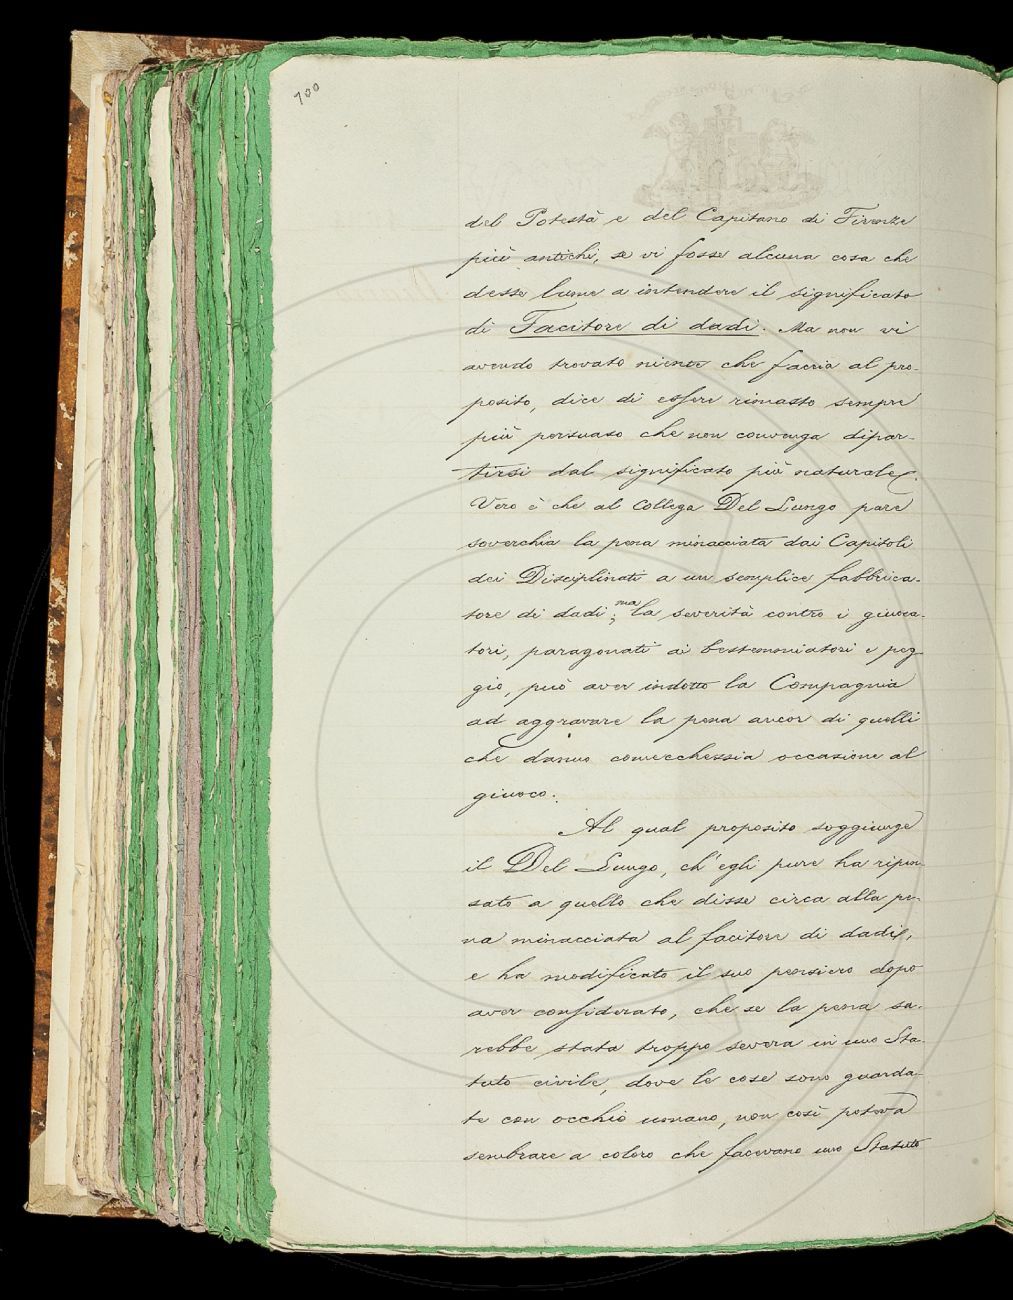 700
del Potestà e del Capitano di Firenze
più antichi, se vi fosse alcuna cosa che
desse lume a intendere il significato
di Facitore di dadi. Ma non vi
avendo trovato niente che faccia al pro-
posito, dice di essere rimasto sempre
più persuaso che non convenga dipar-
tirsi dal significato più naturale.
Vero è che al Collega Del Lungo pare
soverchia la pena minacciata dai Capitoli
dei Disciplinati a un semplice fabbrica-
tore di dadi; ma la severità contro i giuoca-
tori, paragonati ai bestemmiatori e peg-
gio, può aver indotto la Compagnia
ad aggravare la pena ancor di quelli
che danno comecchessia occasione al
giuoco.
Al qual proposito soggiunge
il Del Lungo, ch'egli pure ha ripen-
sato a quello che disse circa alla pe-
na minacciata al facitore di dadi,
e ha modificato il suo pensiero dopo
aver considerato, che se la pena sa-
rebbe stata troppo severa in uno Sta-
tuto civile, dove le cose sono guarda-
te con occhio umano, non così poteva
sembrare a coloro che facevano uno Statuto